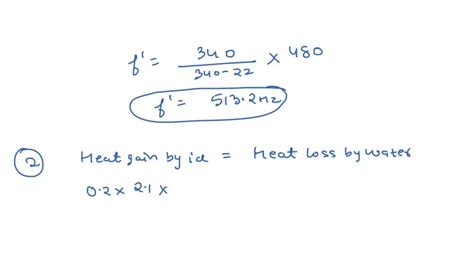 f' = 340 / 340-22 × 480
f' = 513.2Hz
2 Heat gain by ice = Heat loss by water
0.2 × 2.1 ×